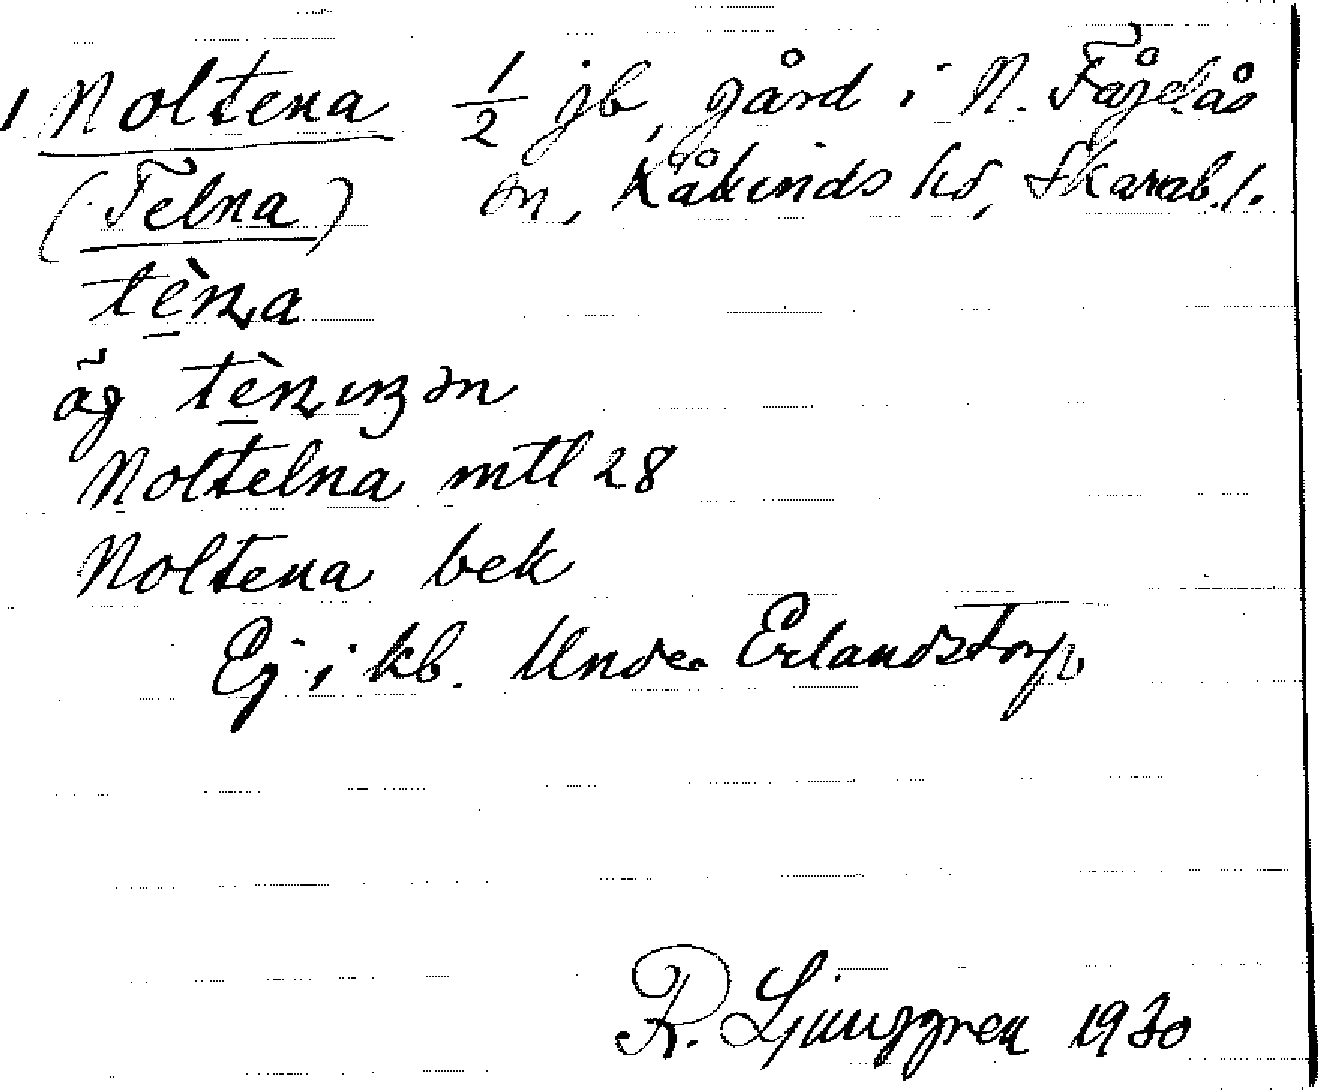 1 Noltena 1/2 jb, gård i N. Fågelås
(Telna) sn, Kåkinds hd, Skarab. l.
tèna
äg tènɩŋən
Noltelna mtl 28
Noltena bek
Ej i kb. Under Erlandstorp
R. Ljunggren 1930